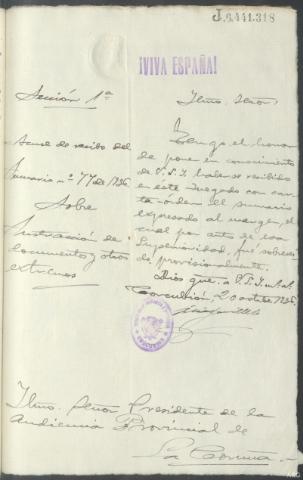 J.6.441.318
¡VIVA ESPAÑA!
Sección 1ª
Acuse de recibo del
Sumario nº 77 de 1936
Sobre
sustracción de
documentos y otros
extremos
Iltmo. Señor:
Tengo el honor
de poner en conocimiento
de V.S.I. haberse recibido
en este Juzgado con car-
ta-orden el sumario
expresado al margen, el
cual por auto de esa
Superioridad, fué sobreseí-
do provisionalmente.
Dios gue. a V.S.I. m. a.
Corcubión, 20 octubre 1936.
Iltmo. Señor Presidente de la
Audiencia Provincial de
La Coruña